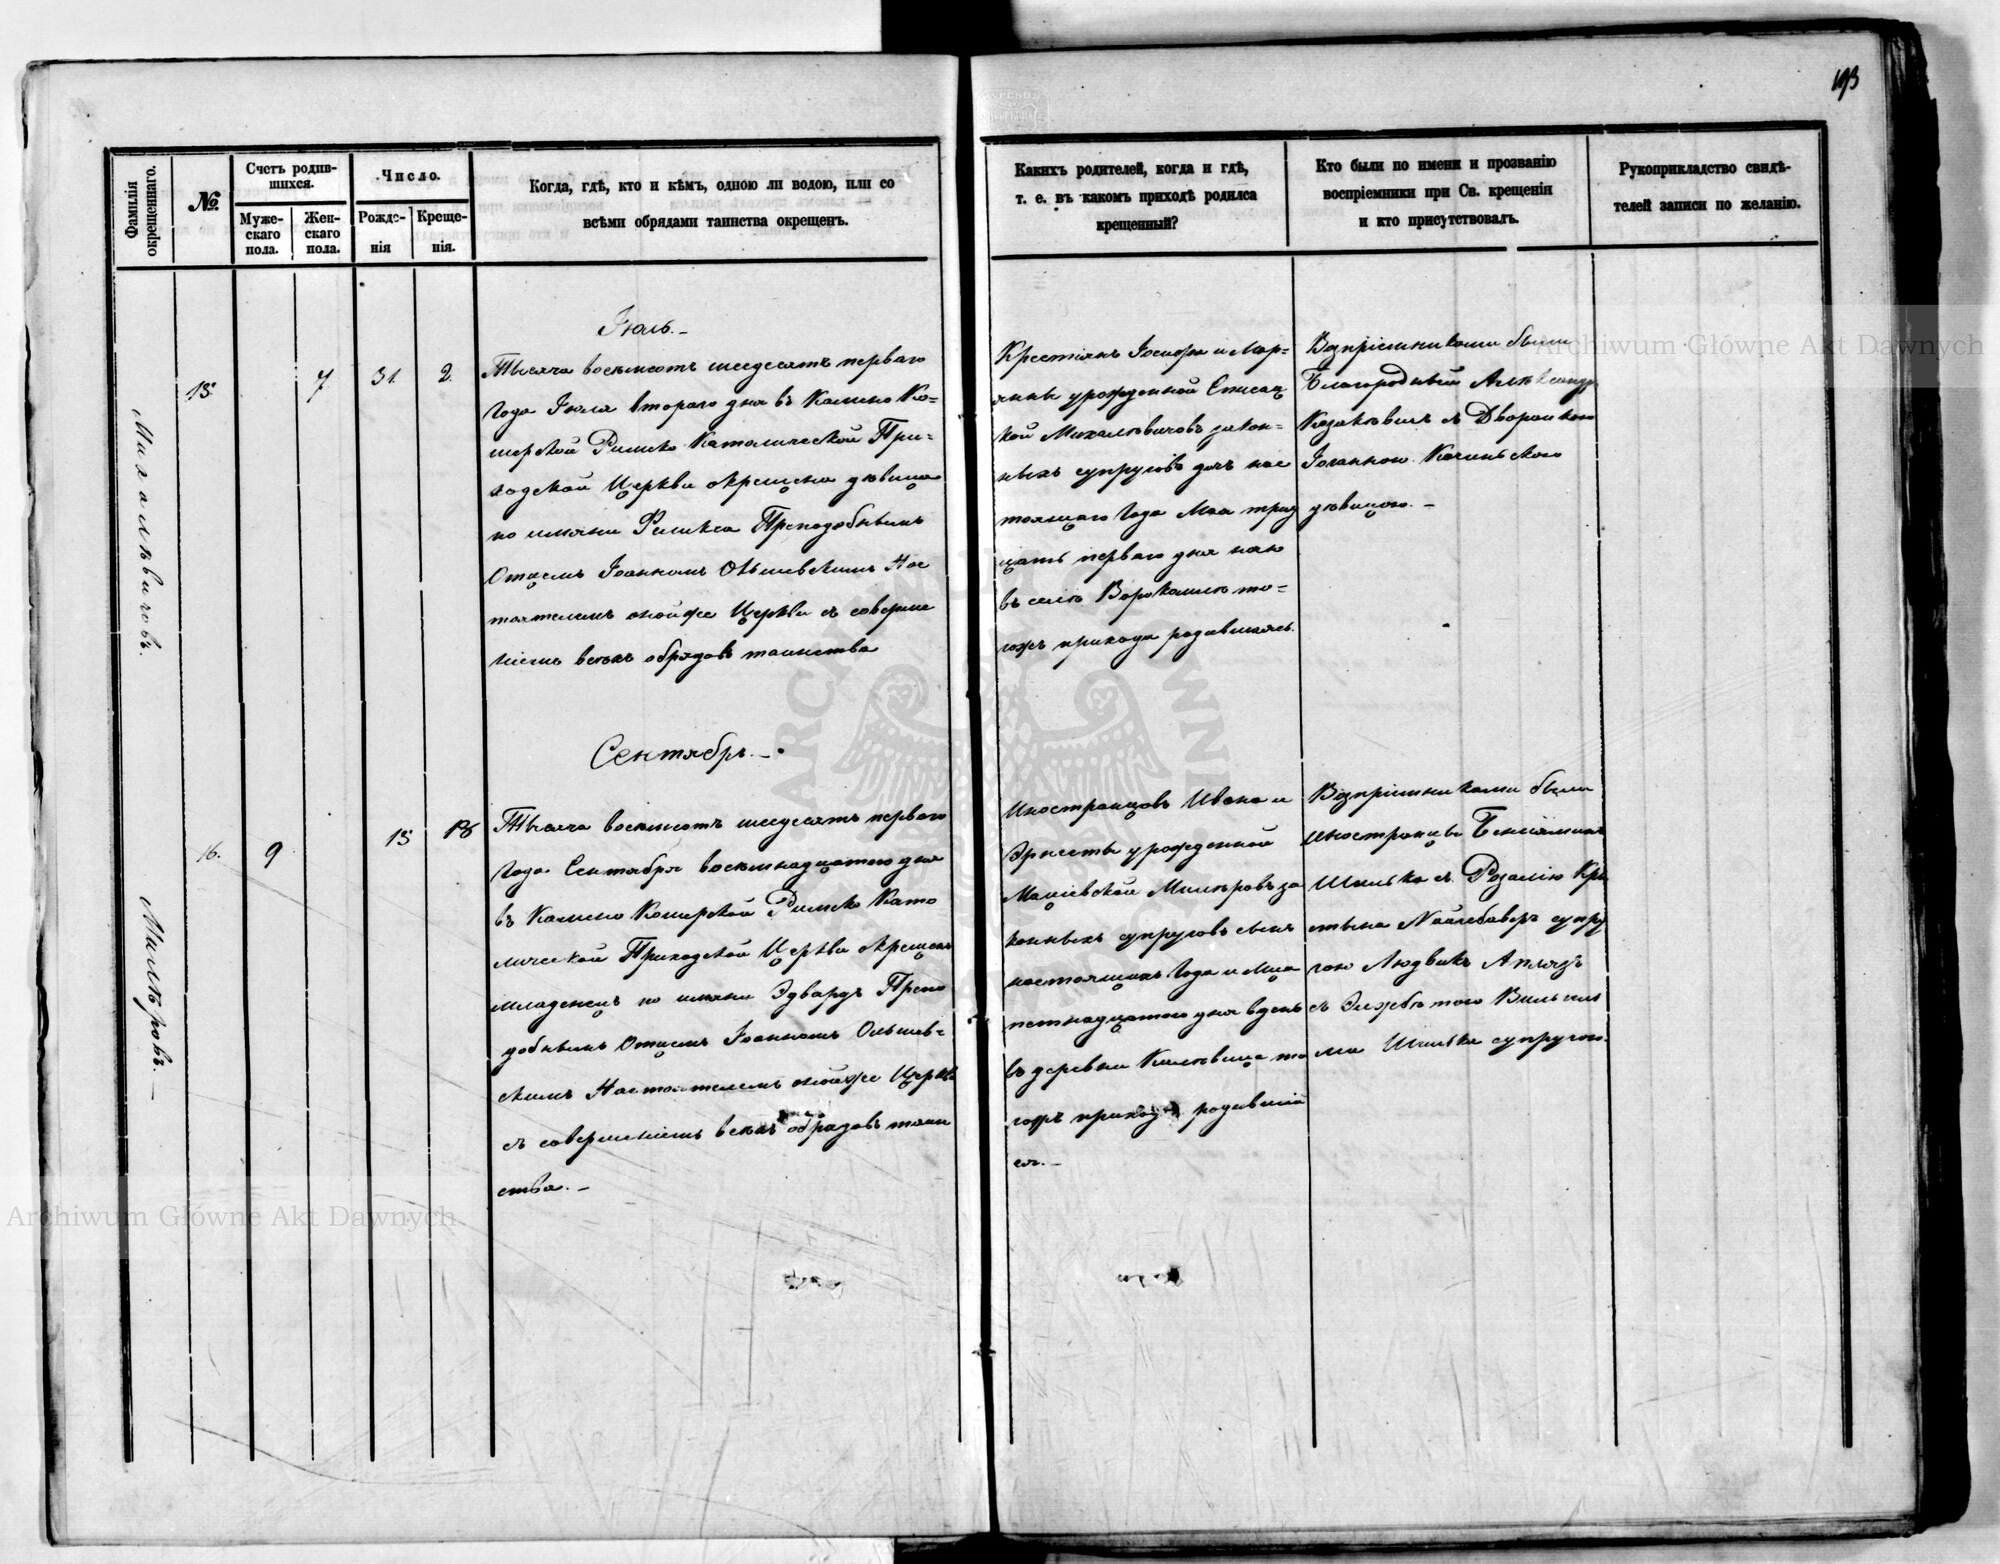 193
Фамилія окрещеннаго.
№.
Счетъ родив-
шихся.
Муже-
скаго
пола.
Жен-
скаго
пола.
Число.
Рожде-
нія
Креще-
нія.
Когда, гдѣ, кто и кѣмъ, одною ли водою, или со
всѣми обрядами таинства окрещенъ.
Какихъ родителей, когда и гдѣ,
т. е. въ какомъ приходѣ родился
крещенный?
Кто были по имени и прозванію
воспріемники при Св. крещеніи
и кто присутствовалъ.
Рукоприкладство свидѣ-
телей записи по желанію.
Михалѣвичовъ.
15.
7
31.
2.
Іюль.
Тысяча восемьсотъ шесдесятъ перваго
Года Іюля втораго дня въ Камено Ко-
шерской Римско Католической При-
ходской Церкви окрещена дѣвица
по имяни Преподобнымъ
Отцемъ Іоанномъ Ольшевскимъ Нас
тоятелемъ оной же Церкви съ соверше
ніемъ всѣхъ обрядовъ таинства
Крестьянъ Іосифа и Мар-
янны урожденной
кой Михалѣвичовъ закон-
ныхъ супруговъ дочь нас
тоящаго Года Мая трид
цать перваго дня
въ селѣ то-
гожъ прихода родившаясь.
Возпріемниками были
Благородный Александръ
съ Дворянкою
Іоанною
дѣвицою.
Сентябрь.
Милѣровъ.
16.
9
15
18
Тысяча восемьсотъ шесдесятъ перваго
Года Сентября восемнадцатого дня
въ Камено Кошерской Римско Като
лической Приходской Церкви окрещенъ
младенецъ по имяни Эдвардъ Препо
добнымъ Отцемъ Іоанномъ Ольшев-
скимъ Настоятелемъ оной же Церкви
съ совершеніемъ всѣхъ обрядовъ таин
ства.
Иностранцовъ Ивана и
Эрнесты урожденной
Милѣровъ за
конныхъ супруговъ сынъ
настоящихъ Года и Мца
петнадцатого дня въ
въ деревни то
гожъ прихода родившій
ся.
Возпріемниками были
иностранцы Беніяминъ
Шилька съ Розалію Кри
стына супру
гою Людвикъ
съ Элжбѣтою
ма Шилька супругою.
Archiwum Główne Akt Dawnych
Archiwum Główne Akt Dawnych